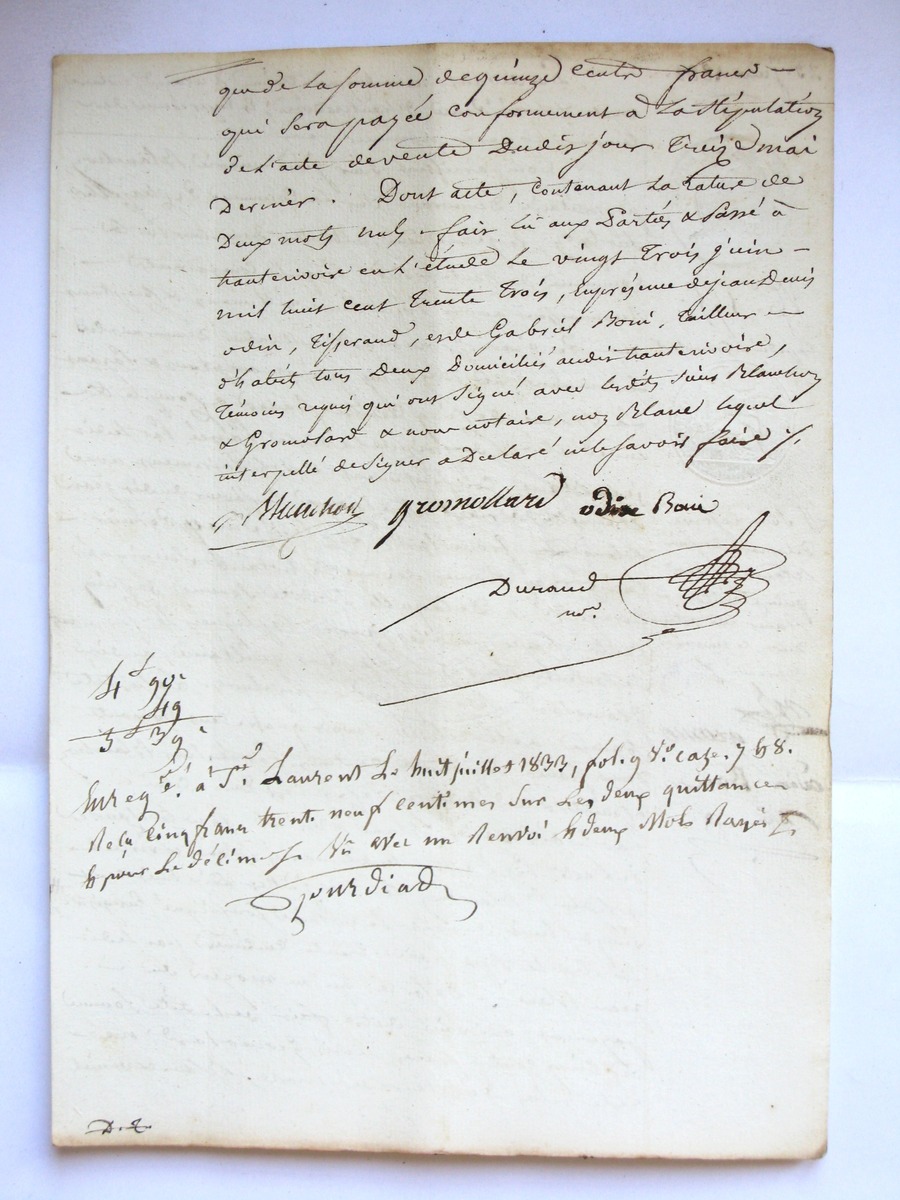 que de la somme de quinze cents francs —
qui sera payée conformement à la stipulation
de l'acte de vente dudit jour treize mai
dernier. Dont acte, contenant la rature de
deux mots nuls, fait lû aux Parties & Passé à
hauterivoire en l'étude le vingt trois juin —
mil huit cent trente trois, en présence de jean Denis
odin, Tisserand, et de Gabriel Boni, Tailleur —
d'habits tous deux domiciliés audit hauterivoire,
témoins requis qui ont signé avec lesdits sieurs Blanchon
& Gromolard & nous notaire, non Blanc lequel
interpellé de signer a déclaré ne le savoir faire ./.
Blanchon gromollard odin Boni
Durand
nre.
4f 90c
49
5f 39c
Enregé. à St. Laurent le huit juillet 1833, fol. 9 Vo. case. 7 & 8.
Reçu cinq francs trente neuf centimes sur les deux quittances
& pour le décime. Vû avec un Renvoi & deux Mots Rayés
D. L.